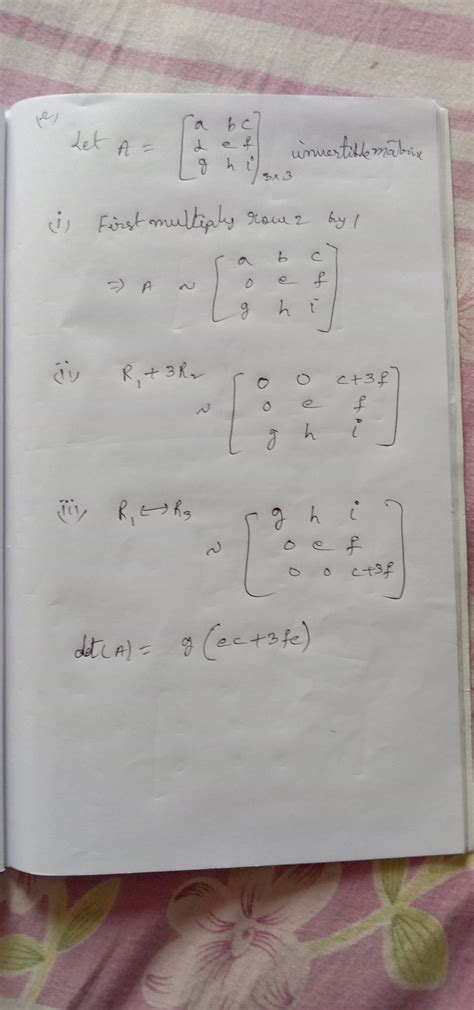 (2)
Let A = [a b c
d e f
g h i]3x3 invertible matrix
(i) First multiply row 2 by 1
⇒ A ~ [a b c
0 e f
g h i]
(ii) R1 + 3R2
~ [0 0 c+3f
0 e f
g h i]
(iii) R1 ↔ R3
~ [g h i
0 e f
0 0 c+3f]
det(A) = g(ec+3fe)